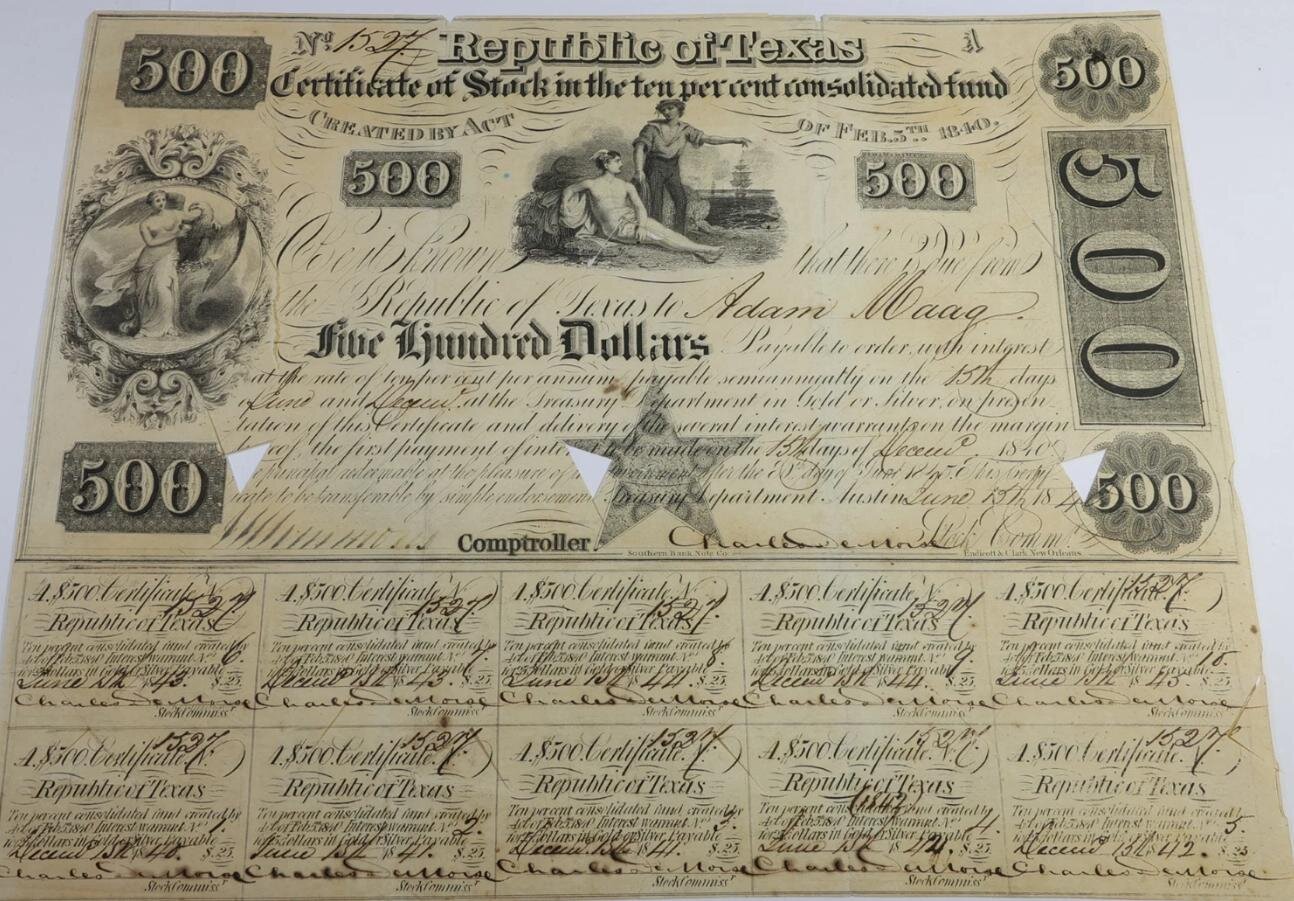 500 No. 1527 Republic of Texas A 500
Certificate of Stock in the ten per cent consolidated fund
CREATED BY ACT OF FEB. 5TH 1840.
500 500
500
Be it known that there is Due from
the Republic of Texas to Adam Maag.
Five Hundred Dollars Payable to order, with interest
at the rate of ten per cent per annum payable semiannually on the 15th days
June and Decem. at the Treasury Department in Gold or Silver, on presen-
tation of this Certificate and delivery of the several interest warrants on the margin
the first payment of interest to be made on the 15th days of Decem. 1840
principal redeemable at the pleasure of
cate to be transferable by simple endorsement Treasury Department Austin June 15th 184
500 500
Comptroller Charles DeMorse Stock Comm
Southern Bank Note Co. Endicott & Clark New Orleans
A. $500. Certificate N. 1527 A. $500. Certificate N. 1527 A. $500. Certificate N. 1527. A. $500. Certificate N. 1527. A. $500. Certificate N. 1527.
Republic of Texas Republic of Texas Republic of Texas Republic of Texas Republic of Texas
Ten per cent consolidated fund created by Ten per cent consolidated fund created by Ten per cent consolidated fund created by Ten per cent consolidated fund created by Ten per cent consolidated fund created by
Act of Feb. 5. 1840 Interest warrant No. 6. Act of Feb. 5. 1840 Interest warrant No. 7. Act of Feb. 5. 1840 Interest warrant No. 8. Act of Feb. 5. 1840 Interest warrant No. 9. Act of Feb. 5. 1840 Interest warrant No. 10.
for 25 dollars in Gold or Silver, Payable for 25 dollars in Gold or Silver, Payable for 25 dollars in Gold or Silver, Payable for 25 dollars in Gold or Silver, Payable for 25 dollars in Gold or Silver, Payable
June 15th 1843. $.25 Decem. 15th 1843. $.25 June 15th 1844. $.25 Decem. 15th 1844. $.25 June 15th 1845. $.25
Charles DeMorse Charles DeMorse Charles DeMorse Charles DeMorse Charles DeMorse
Stock Commissr Stock Commissr Stock Commissr Stock Commissr Stock Commissr
A. $500. Certificate N. 1527. A. $500. Certificate N. 1527. A. $500. Certificate N. 1527. A. $500. Certificate N. 1527. A. $500. Certificate N. 1527.
Republic of Texas Republic of Texas Republic of Texas Republic of Texas Republic of Texas
Ten per cent consolidated fund created by Ten per cent consolidated fund created by Ten per cent consolidated fund created by Ten per cent consolidated fund created by Ten per cent consolidated fund created by
Act of Feb. 5. 1840 Interest warrant No. 1. Act of Feb. 5. 1840 Interest warrant No. 2. Act of Feb. 5. 1840 Interest warrant No. 3. Act of Feb. 5. 1840 Interest warrant No. 4. Act of Feb. 5. 1840 Interest warrant No. 5.
for 25 dollars in Gold or Silver, Payable for 25 dollars in Gold or Silver, Payable for 25 dollars in Gold or Silver, Payable for 25 dollars in Gold or Silver, Payable for 25 dollars in Gold or Silver, Payable
Decem. 15th 40. $.25 June 15th 41. $.25 Decem. 15th 41. $.25 June 15th 42. $.25 Decem. 15th 42. $.25
Charles DeMorse Charles DeMorse Charles DeMorse Charles DeMorse Charles DeMorse
Stock Commissr Stock Commissr Stock Commissr Stock Commissr Stock Commissr